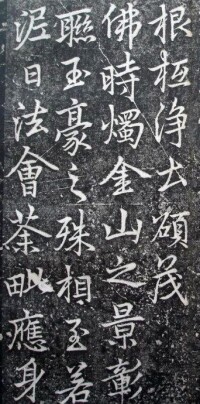 根淨土碩茂
佛時燭金山之景彰
聯玉豪之殊相至若
泥日法會荼毗應身